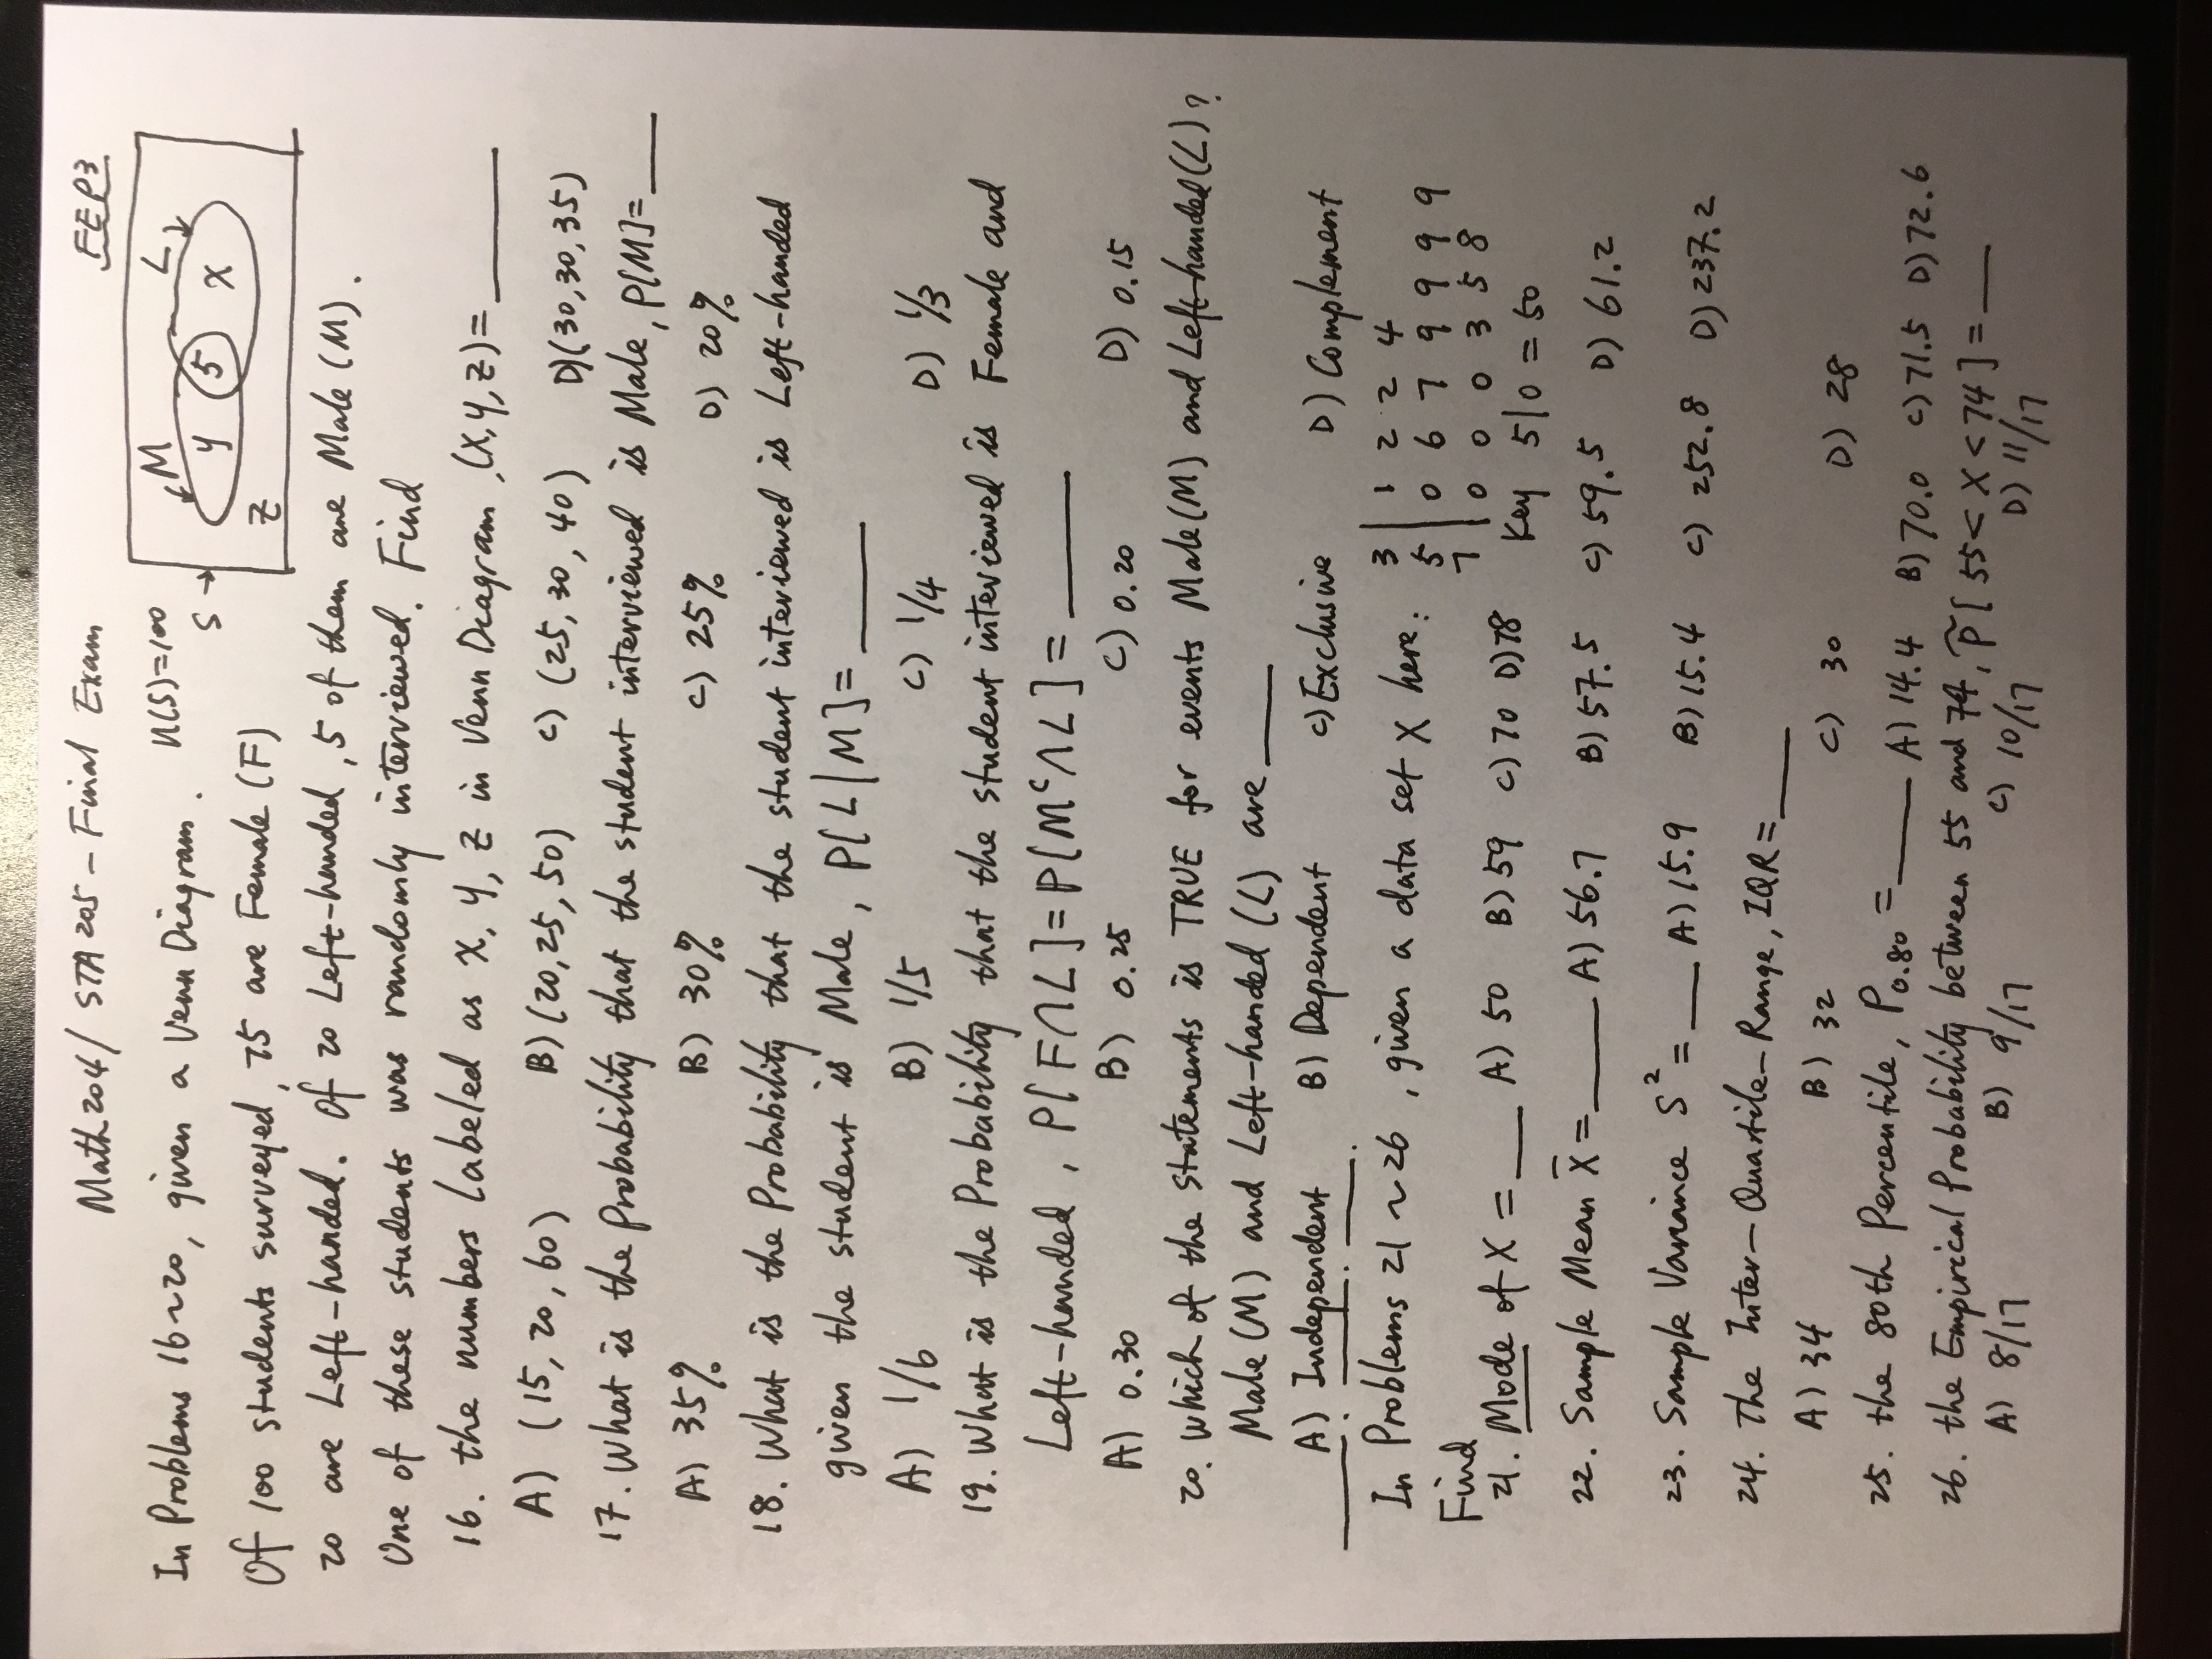 Math 204/ STA 205 - Final Exam FEP3
In Problems 16~20, given a Venn Diagram. n(S)=100
S → M L y 5 x z
Of 100 students surveyed, 75 are Female (F)
20 are Left-handed. Of 20 Left-handed, 5 of them are Male (M).
One of these students was randomly interviewed. Find
16. the numbers labeled as x, y, z in Venn Diagram, (x, y, z) = ____
A) (15, 20, 60) B) (20, 25, 50) C) (25, 30, 40) D) (30, 30, 35)
17. What is the Probability that the student interviewed is Male, P[M] = ___
A) 35% B) 30% C) 25% D) 20%
18. What is the Probability that the student interviewed is Left-handed
given the student is Male, P[L|M] = ____
A) 1/6 B) 1/5 C) 1/4 D) 1/3
19. What is the Probability that the student interviewed is Female and
Left-handed, P[F∩L] = P[Mᶜ∩L] = ____
A) 0.30 B) 0.25 C) 0.20 D) 0.15
20. Which of the statements is TRUE for events Male (M) and Left-handed (L)?
Male (M) and Left-handed (L) are ____
A) Independent B) Dependent C) Exclusive D) Complement
In Problems 21~26, given a data set X here: 3 | 1 2 2 4
Find 5 | 0 6 7 9 9 9 9 9
7 | 0 0 0 3 5 8
Key 5|0 = 50
21. Mode of X = ___ A) 50 B) 59 C) 70 D) 78
22. Sample Mean x̄ = ___ A) 56.7 B) 57.5 C) 59.5 D) 61.2
23. Sample Variance S² = ___ A) 15.9 B) 15.4 C) 252.8 D) 237.2
24. The Inter-Quartile-Range, IQR = ____
A) 34 B) 32 C) 30 D) 28
25. the 80th Percentile, P0.80 = ____ A) 14.4 B) 70.0 C) 71.5 D) 72.6
26. the Empirical Probability between 55 and 74, P̃[55 < X < 74] = ___
A) 8/17 B) 9/17 C) 10/17 D) 11/17